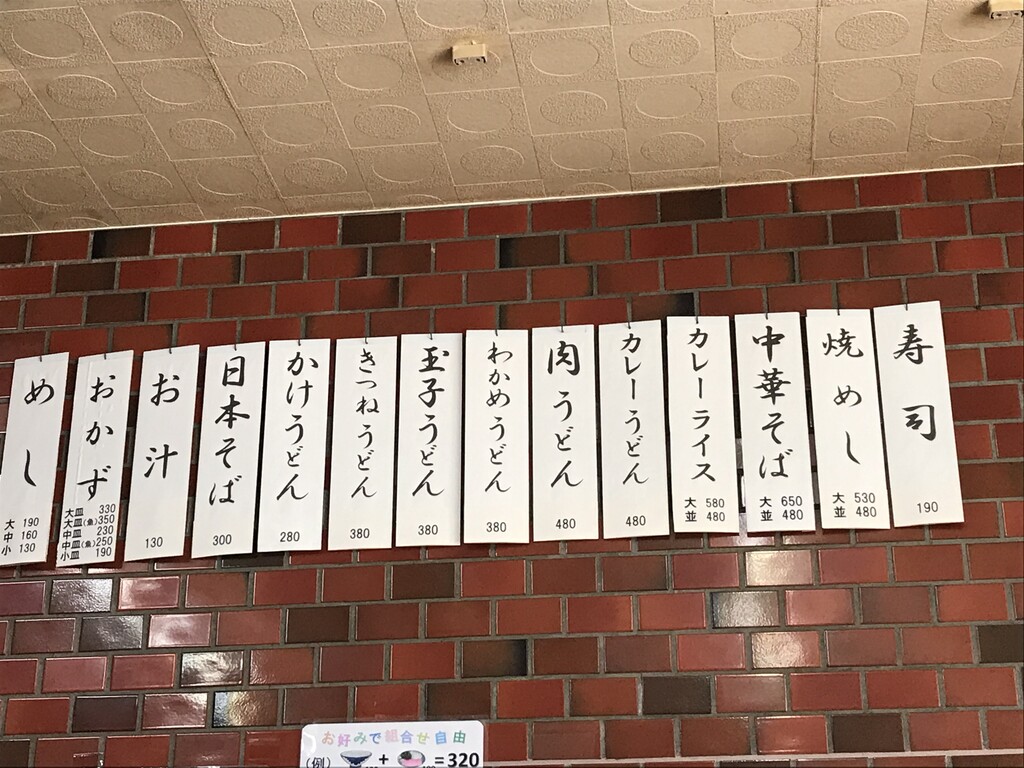 寿司
190
焼めし
大 530
並 480
中華そば
大 650
並 480
カレーライス
大 580
並 480
カレーうどん
480
肉うどん
480
わかめうどん
380
玉子うどん
380
きつねうどん
380
かけうどん
280
日本そば
300
お汁
130
おかず
大皿 330
大皿(魚)350
中皿 230
中皿(魚)250
小皿 190
めし
大 190
中 160
小 130
お好みで組合せ自由
(例) + =320